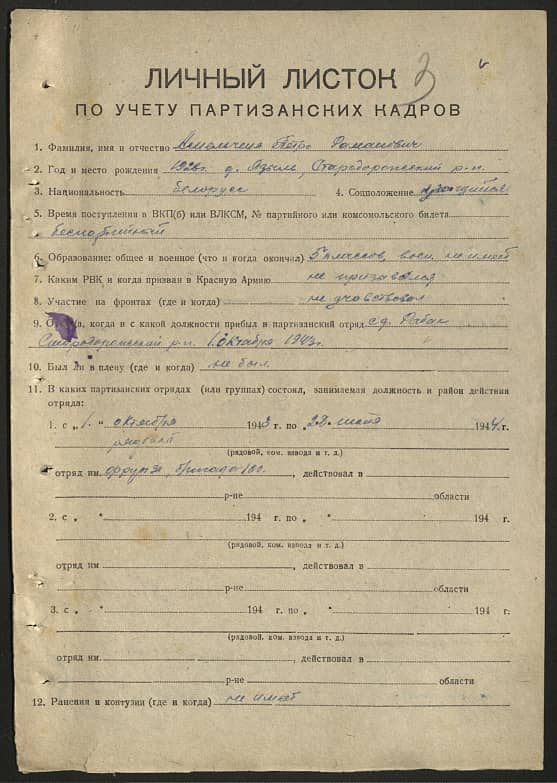 3
ЛИЧНЫЙ ЛИСТОК
ПО УЧЕТУ ПАРТИЗАНСКИХ КАДРОВ
1. Фамилия, имя и отчество Петро Романович
2. Год и место рождения 1926г. д. Стародорожский р-н.
3. Национальность белорус 4. Соцположение учащийся
5. Время поступления в ВКП(б) или ВЛКСМ, № партийного или комсомольского билета
беспартийный
6. Образование: общее и военное (что и когда окончил) 5 классов, воен. не имет
7. Каким РВК и когда призван в Красную Армию не призавался
8. Участие на фронтах (где и когда) не учавствовал
9. Откуда, когда и с какой должности прибыл в партизанский отряд с д.
Стародорожский р-н. 1. октября 1943г.
10. Был ли в плену (где и когда) не был
11. В каких партизанских отрядах (или группах) состоял, занимаемая должность и район действия
отряда:
1. с „ 1. " октября 1943 г. по „ 1944 г.
рядовой
(рядовой, ком. взвода и т. д.)
отряд им. Фрунзе, бригада 100. , действовал в
р-не области
2. с „ " 194 г. по „ " 194 г.
(рядовой, ком. взвода и т. д.)
отряд им , действовал в
р-не области
3. с „ " 194 г. по „ " 194 г.
(рядовой, ком. взвода и т. д.)
отряд им. , действовал в
р-не области
12. Ранения и контузии (где и когда) не имет